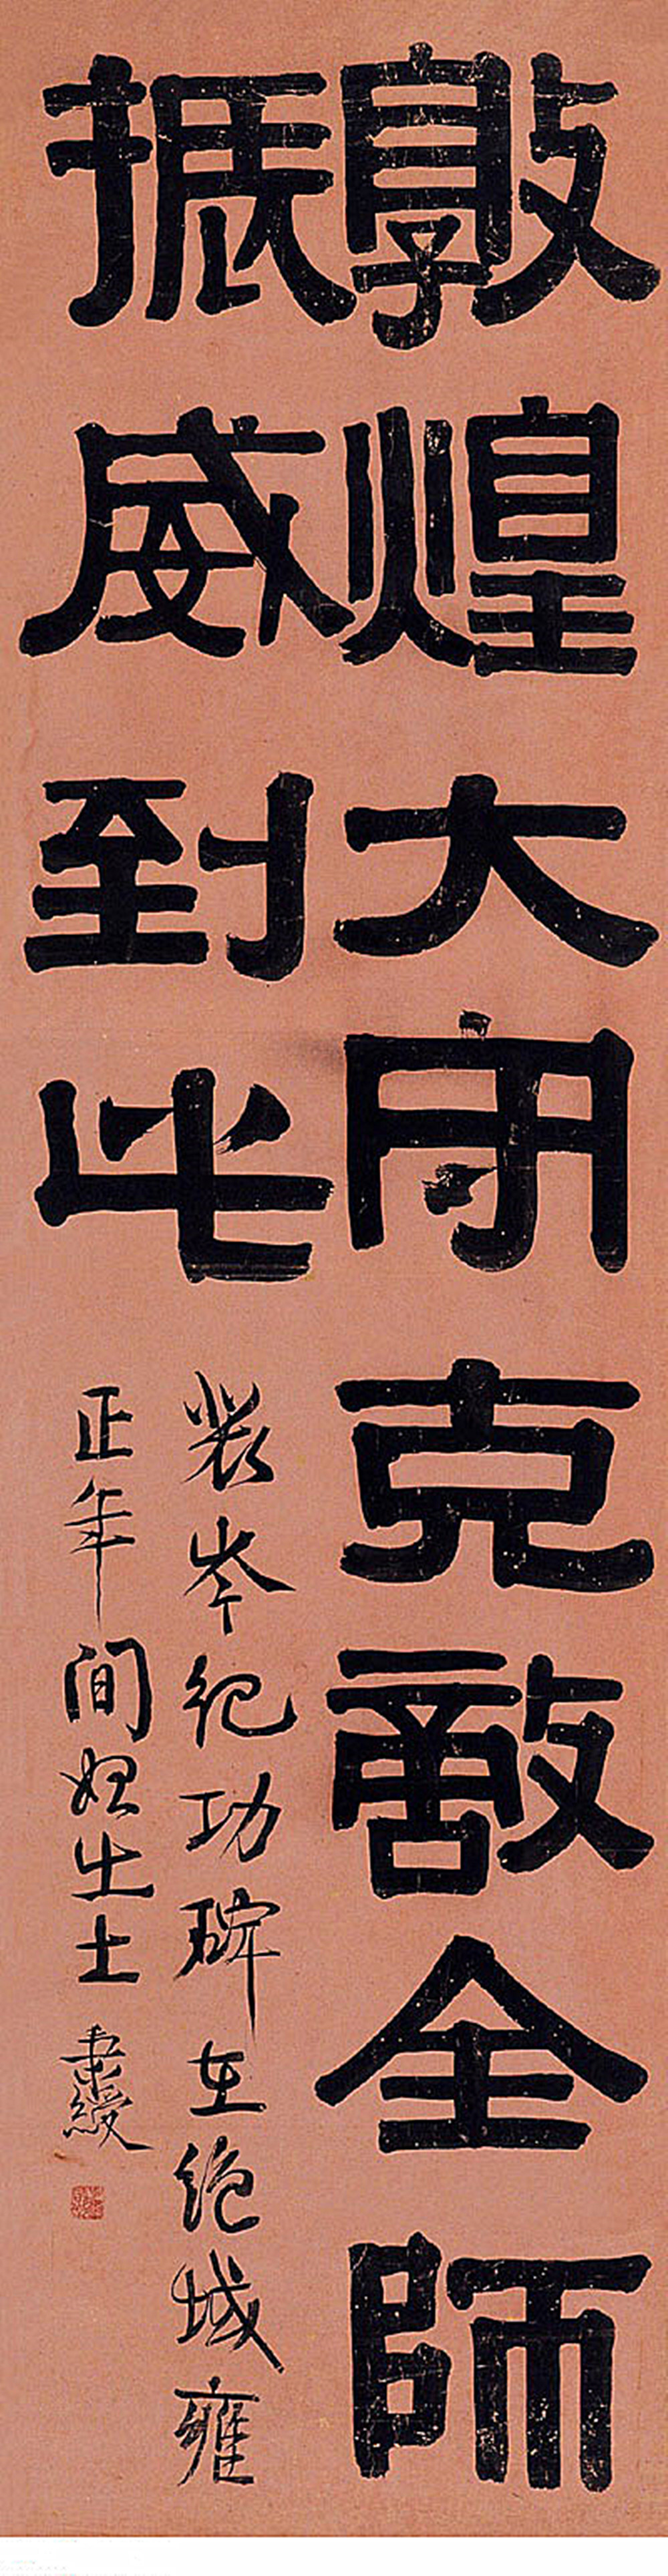 敦煌大守克敵全師
振威到此
裴岑紀功碑在絶域雍
正年間始出土 秉綬